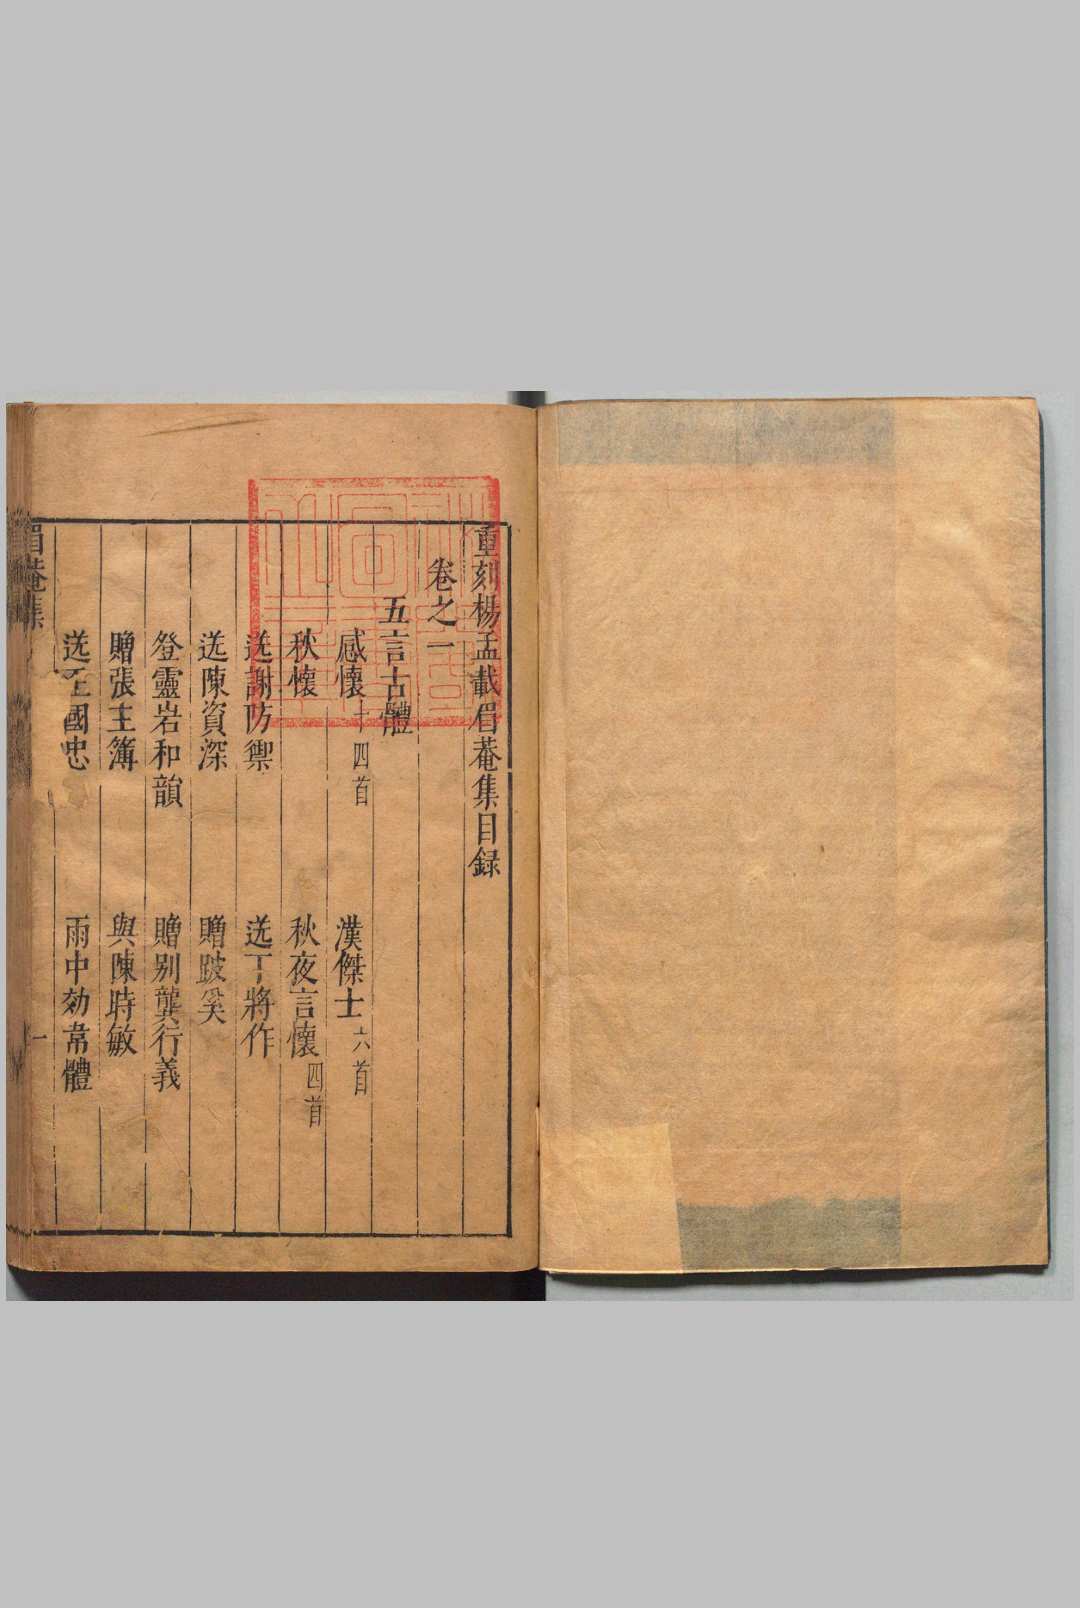 重刻楊孟載眉菴集目録
卷之一
五言古體
感懷十四首 漢傑士六首
秋懷 秋夜言懷四首
送謝防禦 送丁將作
送陳資深 贈跛奚
登靈岩和韻 贈别龔行義
贈張主簿 與陳時敏
送王國忠 雨中効韋體
眉菴集 一